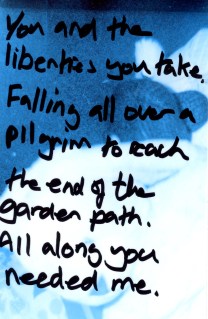 You and the
liberties you take.
Falling all over a
pilgrim to reach
the end of the
garden path.
All along you
needed me.